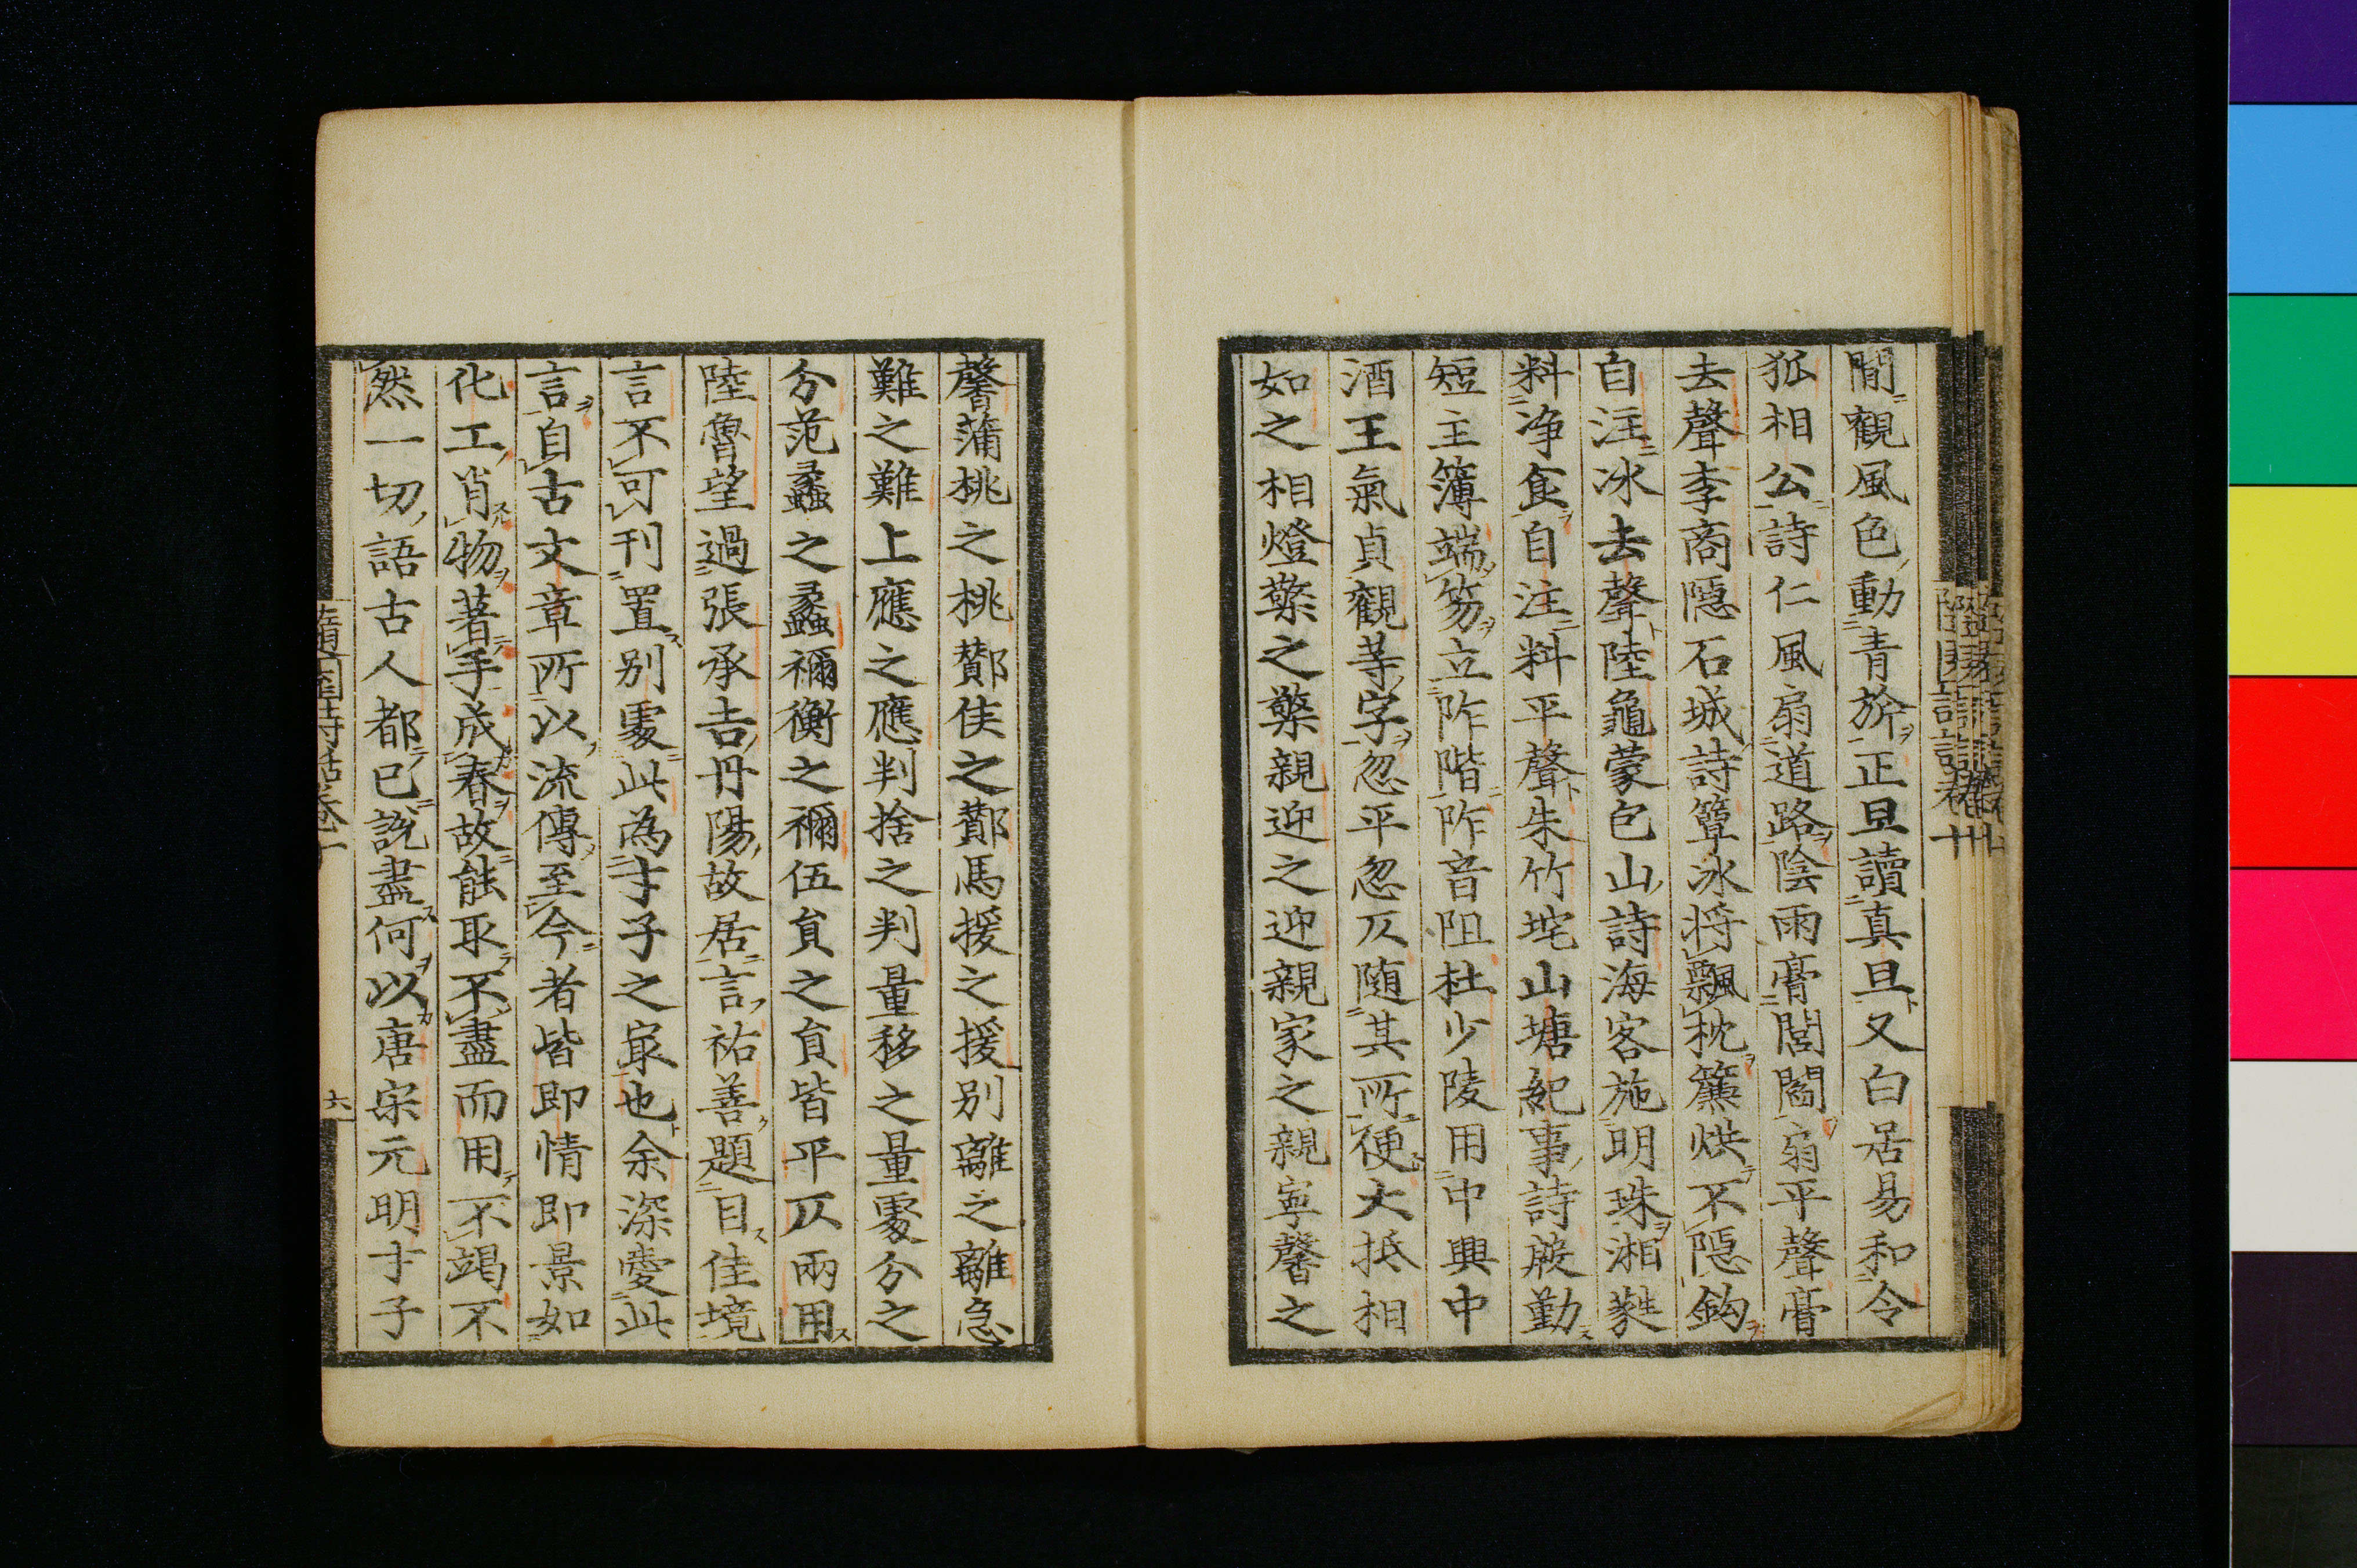 間觀風色動青旂正旦讀真旦又白居易和令
狐相公詩仁風扇道路陰雨膏閭閻扇平聲膏
去聲李商隱石城詩簟冰將飄枕簾烘不隱鈎
自注冰去聲陸龜蒙包山詩海客施明珠湘蕤
料淨食自注料平聲朱竹垞山塘紀事詩蕨勤
短主簿端笏立阼階阼音阻杜少陵用中興中
酒王氣貞觀等字忽平忽仄隨其所便大抵相
如之相燈檠之檠親迎之迎親家之親寧馨之
馨蒲桃之桃酇侯之酇馬援之援别離之離急
難之難上應之應判捨之判量移之量處分之
分范蠡之蠡禰衡之禰伍員之員皆平仄兩用
陸魯望過張承吉丹陽故居言祐善題目佳境
言不可刊置别處此為才子之最也余深愛此
言自古文章所以流傳至今者皆即情即景如
化工肖物著手成春故能取不盡而用不竭不
然一切語古人都已說盡何以唐宋元明才子
隨園詩話卷十
六